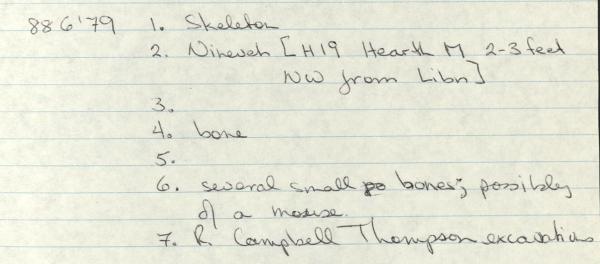 886'79 1. Skeleton
2. Nineveh [H19 Hearth M 2-3 feet
NW from Libn]
3.
4. bone
5.
6. several small bones; possibly
of a mouse.
7. R. Campbell Thompson excavations